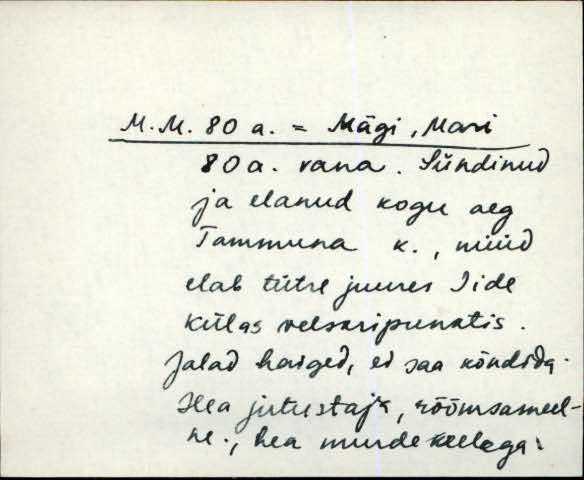 M.M. 80 a. = Mägi, Mari
80 a. vana. Sündinud
ja elanud kogu aeg
Tammuna k., nüüd
elab tütre juures Iide
külas velskripunktis.
Jalad haiged, ei saa kõndida.
Hea jutustaja, rõõmsameel-
ne., hea murdekeelega.